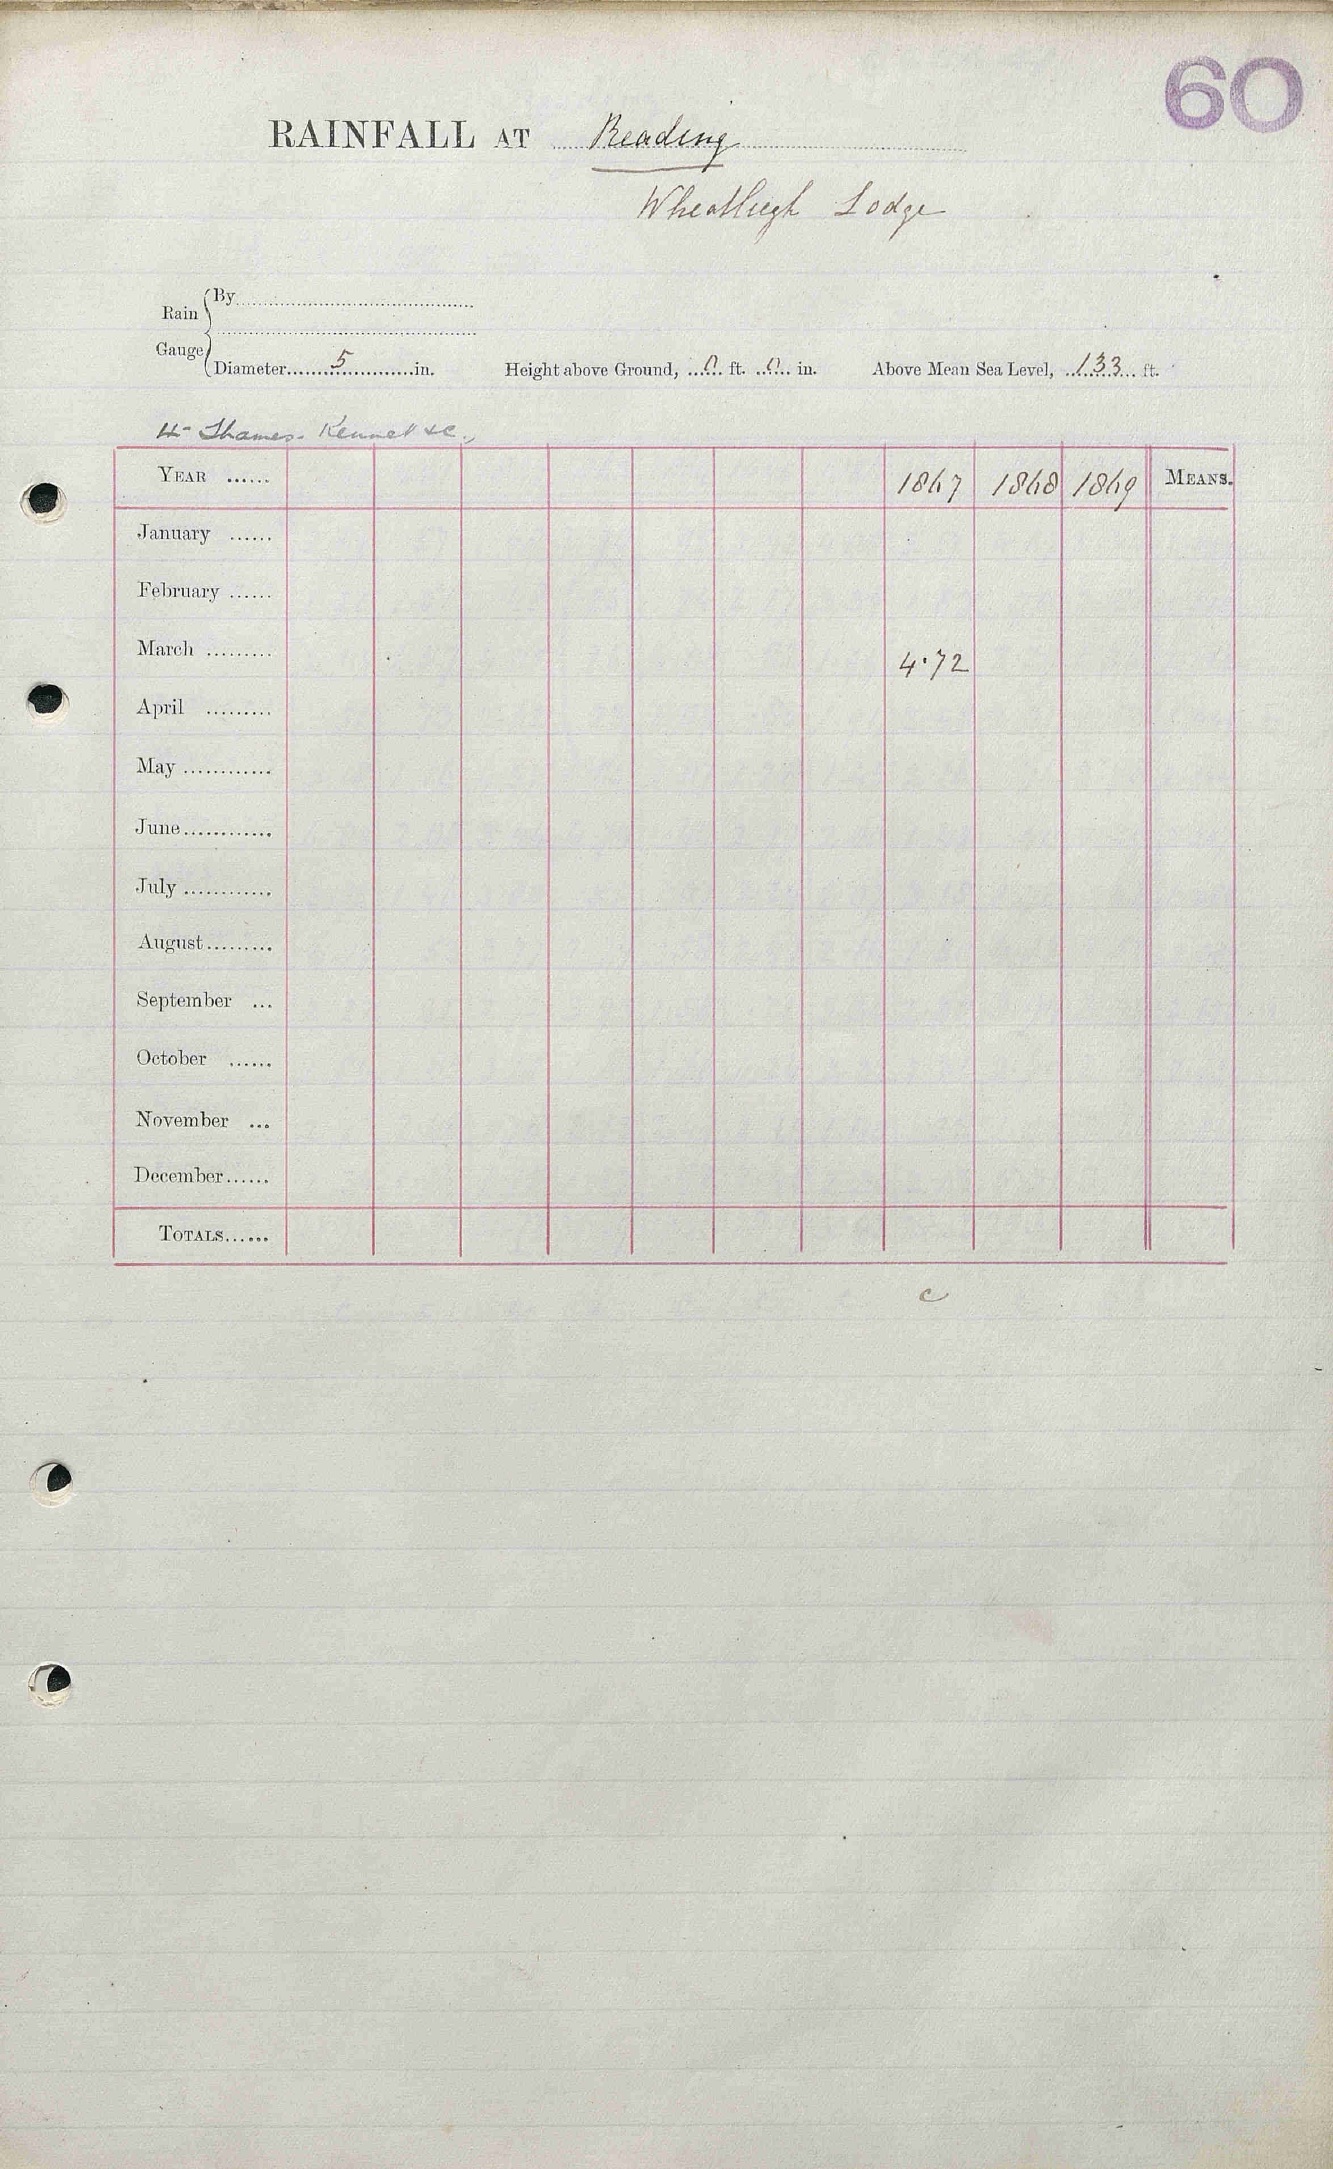 60
RAINFALL AT Reading
Wheatleigh Lodge
Rain Gauge
By
Diameter 5 in. Height above Ground, 0 ft. 0 in. Above Mean Sea Level, 133 ft.
Thames. Kennet &c.
YEAR 1867 1868 1869 MEANS.
January
February
March 4.72
April
May
June
July
August
September
October
November
December
TOTALS
c